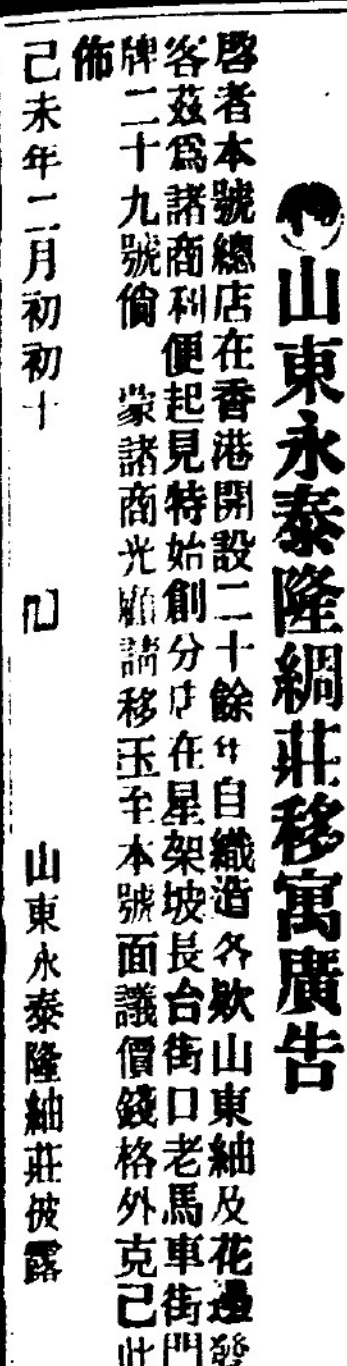 山東永泰隆綢莊移寓廣告
啓者本號總店在香港開設二十餘年自織造各欵山東紬及花邊發
客茲爲諸商利便起見特始創分店在星架坡長台街口老馬車街門
牌二十九號倘 蒙諸商光顧請移玉至本號面議價錢格外克己此
佈
己未年二月初初十
山東永泰隆紬莊披露